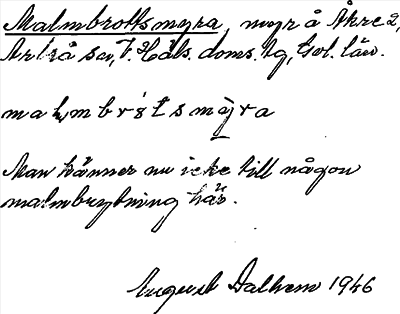 Malmbrottsmyra, myr å Åkre 2,
Arbrå sn, V. Häls. doms. tg, Gvl. län.
malmbrȯtsmỳra
Man känner nu icke till någon
malmbrytning här.
August Dalhem 1946